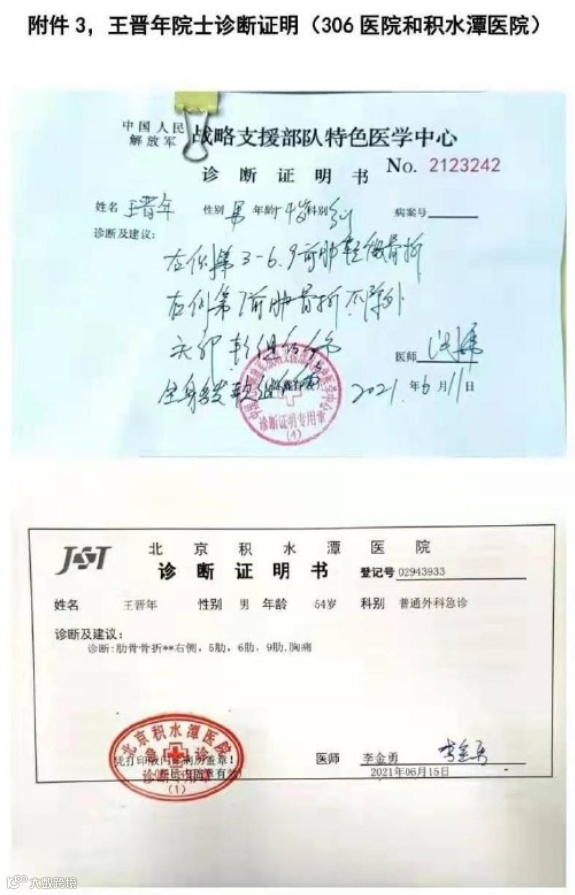 附件 3，王晋年院士诊断证明（306 医院和积水潭医院）
中国人民
解放军 战略支援部队特色医学中心
诊 断 证 明 书 No. 2123242
姓名 王晋年 性别 男 年龄 54岁 科别 病案号
诊断及建议：
右侧第3-6.9前肋轻微骨折
右侧第7前肋骨折不除外
头部软组织
医师
全身多发软组织
2021.年6月11日
诊断证明专用章
(4)
JST 北京积水潭医院
诊断证明书 登记号 02943933
姓名 王晋年 性别 男 年龄 54岁 科别 普通外科急诊
诊断及建议：
诊断:肋骨骨折**右侧，5肋，6肋，9肋,胸痛
北京积水潭医院
急 诊
诊断证明专用章
(1)
医师 李金勇 李金勇
2021年06月15日
大数跨境